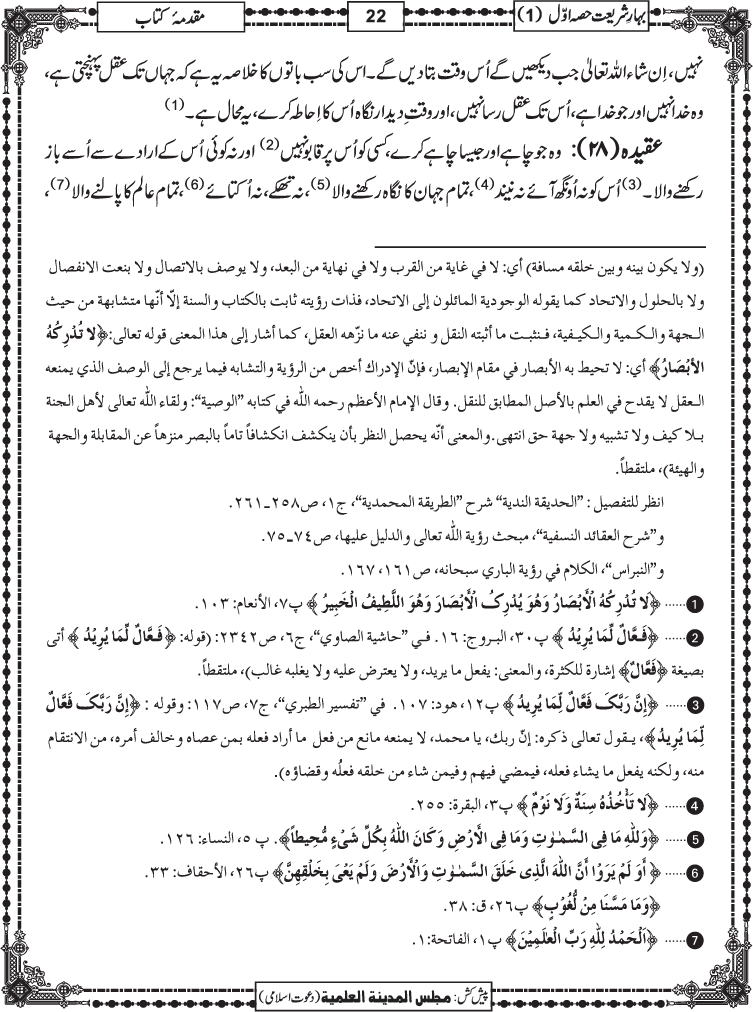 بہارِ شریعت حصہ اوّل (1)
22
مقدمۂ کتاب
نہیں، اِن شاء اللہ تعالیٰ جب دیکھیں گے اُس وقت بتا دیں گے۔ اس کی سب باتوں کا خلاصہ یہ ہے کہ جہاں تک عقل پہنچتی ہے،
وہ خدا نہیں اور جو خدا ہے، اُس تک عقل رسا نہیں، اور وقتِ دیدار نگاہ اُس کا اِحاطہ کرے، یہ محال ہے۔ (1)
عقیدہ (۲۸): وہ جو چاہے اور جیسا چاہے کرے، کسی کو اُس پر قابو نہیں (2) اور نہ کوئی اُس کے ارادے سے اُسے باز
رکھنے والا۔ (3) اُس کو نہ اُونگھ آئے نہ نیند (4)، تمام جہان کا نگاہ رکھنے والا (5)، نہ تھکے، نہ اُکتائے (6)، تمام عالم کا پالنے والا (7)،
(ولا يكون بينه وبين خلقه مسافة) أي: لا في غاية من القرب ولا في نهاية من البعد، ولا يوصف بالاتصال ولا بنعت الانفصال
ولا بالحلول والاتحاد كما يقوله الوجودية المائلون إلى الاتحاد، فذات رؤيته ثابت بالكتاب والسنة إلّا أنّها متشابهة من حيث
الجهة والكمية والكيفية، فنثبت ما أثبته النقل و ننفي عنه ما نزّهه العقل، كما أشار إلى هذا المعنى قوله تعالى: ﴿لا تُدْرِكُهُ
الأَبْصَارُ﴾ أي: لا تحيط به الأبصار في مقام الإبصار، فإنّ الإدراك أخص من الرؤية والتشابه فيما يرجع إلى الوصف الذي يمنعه
العقل لا يقدح في العلم بالأصل المطابق للنقل. وقال الإمام الأعظم رحمه الله في كتابه ”الوصية“: ولقاء الله تعالى لأهل الجنة
بلا كيف ولا تشبيه ولا جهة حق انتهى. والمعنى أنّه يحصل النظر بأن ينكشف انكشافاً تاماً بالبصر منزهاً عن المقابلة والجهة
والهيئة)، ملتقطاً.
انظر للتفصيل : ”الحديقة الندية“ شرح ”الطريقة المحمدية“، ج١، ص٢٥٨ـ٢٦١.
و”شرح العقائد النسفية“، مبحث رؤية الله تعالى والدليل عليها، ص٧٤ـ٧٥.
و”النبراس“، الكلام في رؤية الباري سبحانه، ص١٦١، ١٦٧.
1 ...... ﴿لَا تُدْرِكُهُ الْأَبْصَارُ وَهُوَ يُدْرِكُ الْأَبْصَارَ وَهُوَ اللَّطِيفُ الْخَبِيرُ﴾ پ٧، الأنعام: ١٠٣.
2 ...... ﴿فَعَّالٌ لِّمَا يُرِيْدُ﴾ پ٣٠، البروج: ١٦. في ”حاشية الصاوي“، ج٦، ص٢٣٤٢: (قوله: ﴿فَعَّالٌ لِّمَا يُرِيْدُ﴾ أتى
بصيغة ﴿فَعَّالٌ﴾ إشارة للكثرة، والمعنى: يفعل ما يريد، ولا يعترض عليه ولا يغلبه غالب)، ملتقطاً.
3 ...... ﴿إِنَّ رَبَّكَ فَعَّالٌ لِّمَا يُرِيدُ﴾ پ١٢، هود: ١٠٧. في ”تفسير الطبري“، ج٧، ص١١٧: وقوله : ﴿إِنَّ رَبَّكَ فَعَّالٌ
لِّمَا يُرِيدُ﴾، يقول تعالى ذكره: إنّ ربك، يا محمد، لا يمنعه مانع من فعل ما أراد فعله بمن عصاه وخالف أمره، من الانتقام
منه، ولكنه يفعل ما يشاء فعله، فيمضي فيهم وفيمن شاء من خلقه فعلُه وقضاؤه).
4 ...... ﴿لَا تَأْخُذُهُ سِنَةٌ وَلَا نَوْمٌ﴾ پ٣، البقرة: ٢٥٥.
5 ...... ﴿وَلِلّٰهِ مَا فِى السَّمٰوٰتِ وَمَا فِى الْأَرْضِ وَكَانَ اللّٰهُ بِكُلِّ شَىْءٍ مُّحِيطاً﴾. پ ٥، النساء: ١٢٦.
6 ...... ﴿أَوَ لَمْ يَرَوْا أَنَّ اللّٰهَ الَّذِى خَلَقَ السَّمٰوٰتِ وَالْأَرْضَ وَلَمْ يَعْىَ بِخَلْقِهِنَّ﴾ پ٢٦، الأحقاف: ٣٣.
﴿وَمَا مَسَّنَا مِنْ لُّغُوْبٍ﴾ پ٢٦، ق: ٣٨.
7 ...... ﴿اَلْحَمْدُ لِلّٰهِ رَبِّ الْعٰلَمِيْنَ﴾ پ١، الفاتحة: ١.
پیش کش: مجلس المدينة العلمية (دعوت اسلامی)